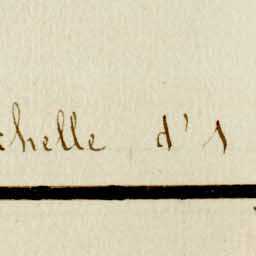 chelle d'1